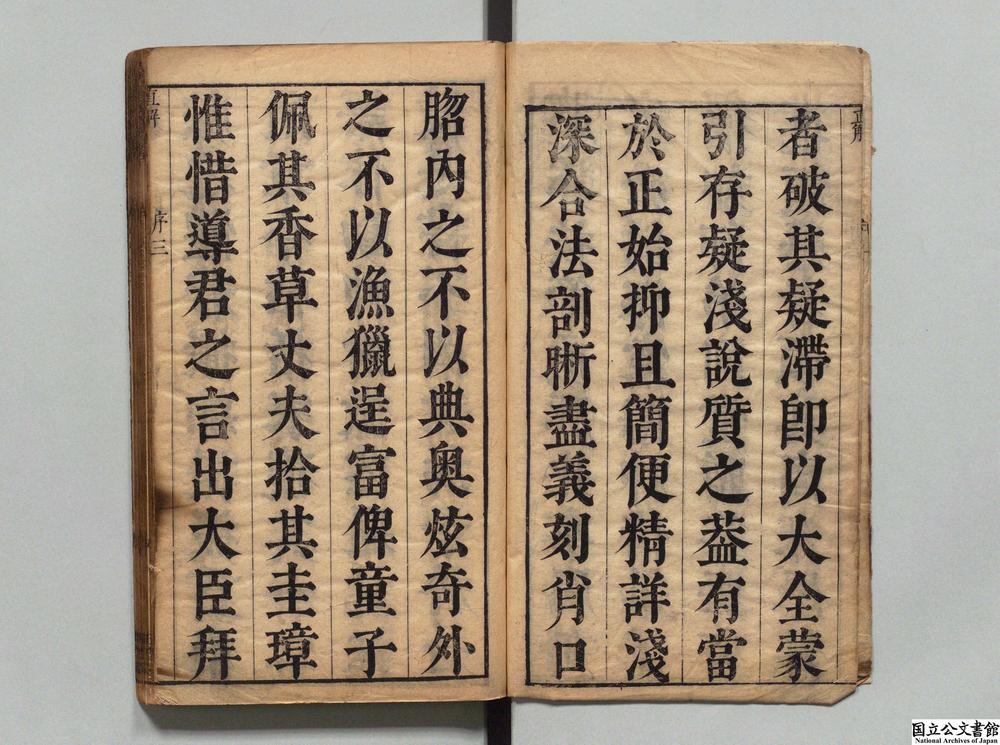 者破其疑滯即以大全蒙
引存疑淺說質之葢有當
於正始抑且簡便精詳淺
深合法剖晰盡義刻肖口
䏚內之不以典奧炫奇外
之不以漁獵逞富俾童子
佩其香草丈夫拾其圭璋
惟惜導君之言出大臣拜
直解
序三
国立公文書館
National Archives of Japan